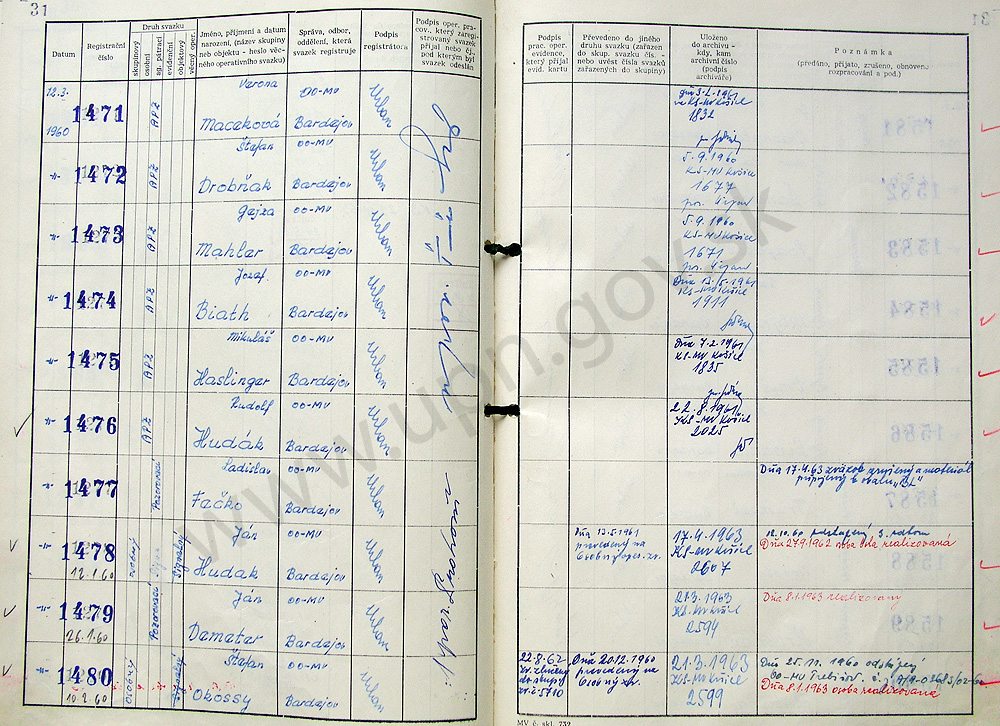 31
Datum
Registrační
číslo
Druh svazku
skupinový
osobní
ag. pátrací
evidenční
objektový
věcný oper.
Jméno, příjmení a datum
narození, (název skupiny
neb objektu - heslo věc-
ného operativního svazku)
Správa, odbor,
oddělení, která
svazek registruje
Podpis
registrátora
Podpis oper. pra-
cov., který zareg.
svazek přijal
nebo čj.,
pod kterým byl
svazek odeslán
Podpis
prac. oper.
evidence,
který přijal
evid. kartu
Převedeno do jiného
druhu svazku (zařazen
do skup. svazku čís. -
nebo uvést čísla svazků
zařazených do skupiny)
Uloženo
do archivu -
kdy, kam
archivní číslo
(podpis
archiváře)
Poznámka
(předáno, přijato, zrušeno, obnoveno
rozpracování a pod.)
12.3.
1960
1471
APZ
Verona
Maceková
OO-MV
Bardejov
Urban
1832
-"-
1472
APZ
Štefan
Drobňak
OO-MV
Bardejov
Urban
5.9.1960
KS-MV Košice
1677
-"-
1473
APZ
Gejza
Mahler
OO-MV
Bardejov
Urban
5.9.1960
KS-MV Košice
1671
-"-
1474
APZ
Jozef
Biath
OO-MV
Bardejov
Urban
Dňa 13.5.1961
KS-MV Košice
1911
-"-
1475
APZ
Mikuláš
Haslinger
OO-MV
Bardejov
Urban
Dňa 7.2.1961
KS-MV Košice
1835
-"-
1476
APZ
Rudolf
Hudák
OO-MV
Bardejov
Urban
22.8.1961
KS-MV Košice
2025
-"-
1477
Pozorovací
Ladislav
Fačko
OO-MV
Bardejov
Urban
Dňa 17.4.63 zväzok zrušený a materiál
pripojený k obalu
-"-
1478
12.1.60
osobný
Signálny
Ján
Hudak
OO-MV
Bardejov
Urban
Dňa 13.5.1961
prevedený na
17.4.1963
KS-MV Košice
2607
12.10.60 postúpený 3. odboru
Dňa 27.9.1962 osoba realizovaná
-"-
1479
26.1.60
Pozorovací
Ján
Demeter
OO-MV
Bardejov
Urban
21.3.1963
KS-MV Košice
2594
Dňa 8.1.1963 realizovaný
-"-
1480
10.2.60
osobný
Signálny
Štefan
Okossy
OO-MV
Bardejov
Urban
22.8.62
do skupiny
č. 5710
Dňa 20.12.1960
prevedený na
Osobný zv.
21.3.1963
KS-MV Košice
2599
Dňa 25.11.1960 odstúpený
OO-MV Trebišov
Dňa 8.1.1963 osoba realizovaná
MV č. skl. 732
www.upn.gov.sk